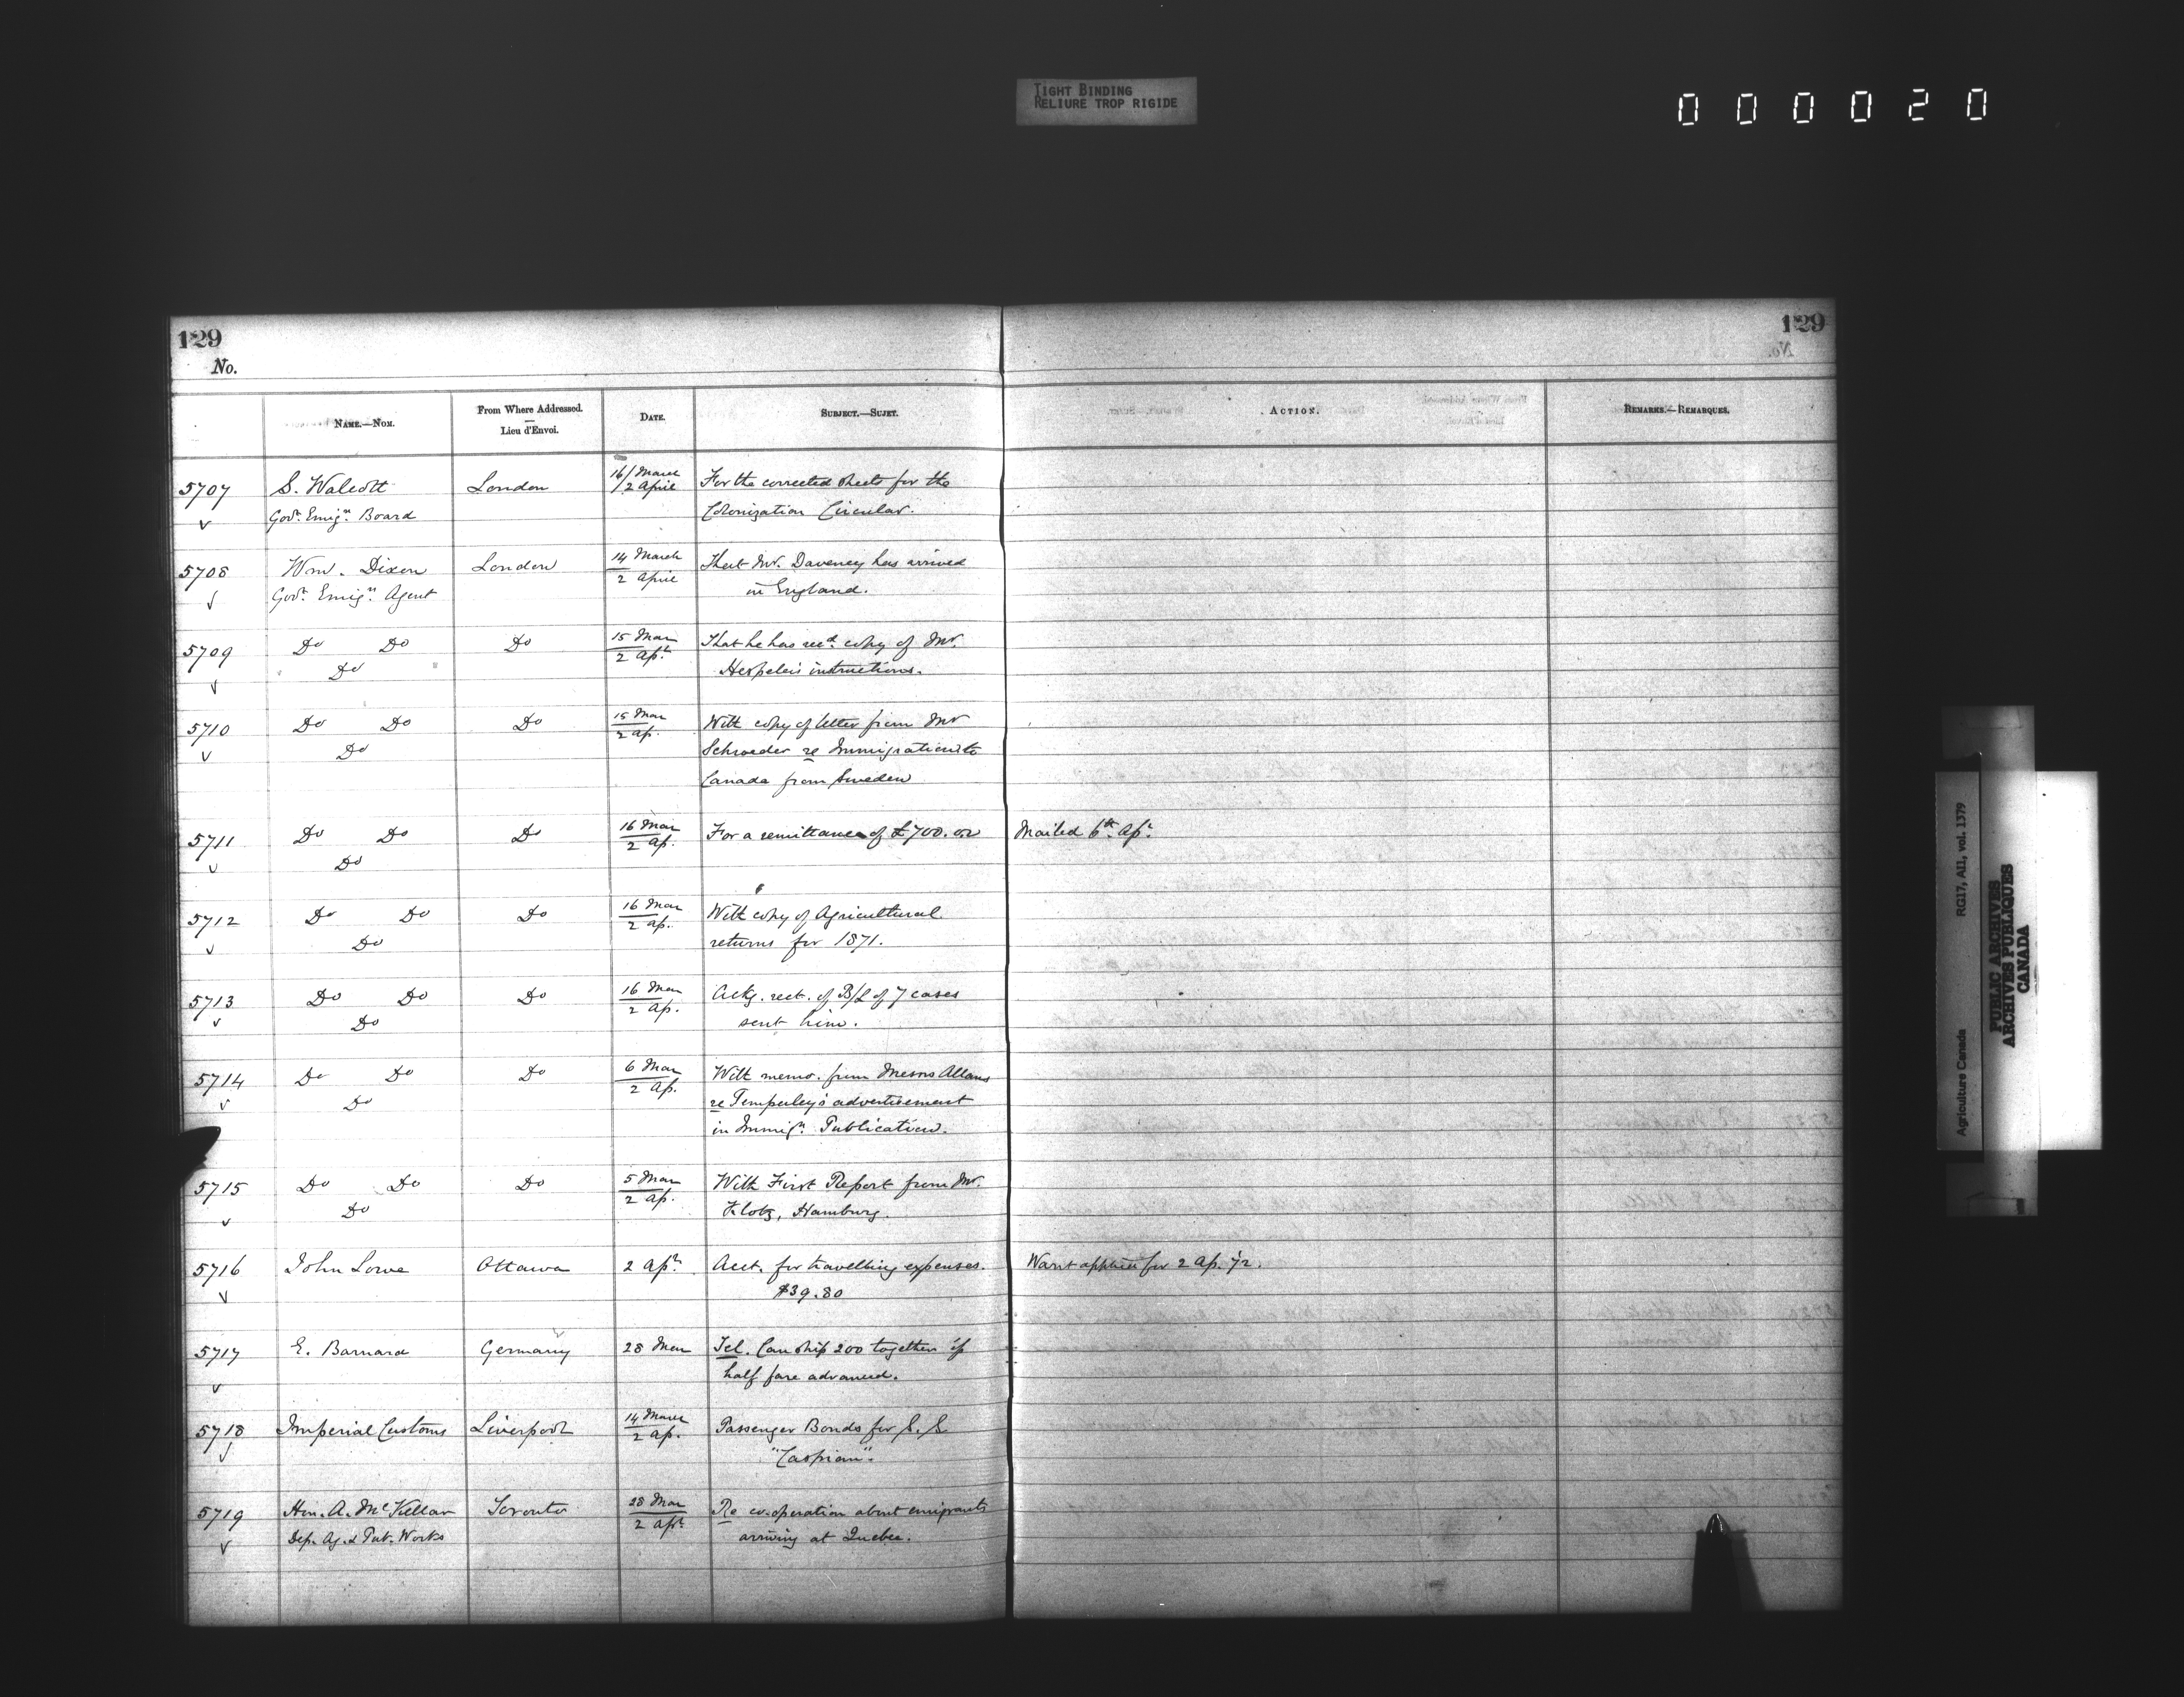 TIGHT BINDING
RELIURE TROP RIGIDE
000020
129
129
No.
NAME.—NOM.
From Where Addressed.
—
Lieu d'Envoi.
DATE.
SUBJECT.—SUJET.
ACTION.
REMARKS.—REMARQUES.
5707 S. Walcott London 16/March For the corrected sheets for the
Govt. Emign. Board /2 April Colonization Circular.
5708 Wm. Dixon London 14 March That Mr. Daveney has arrived
Govt. Emign. Agent 2 April in England.
5709 Do Do Do 15 Mar That he has recd. copy of Mr.
Do 2 Apl. Hespeler's intructions.
5710 Do Do Do 15 Mar With copy of letter from Mr
Do 2 Ap. Schroeder re Immigration to
Canada from Sweden
5711 Do Do Do 16 Mar For a remittance of £700. Mailed 6th. Apl.
Do 2 Ap.
5712 Do Do Do 16 Mar With copy of Agricultural
Do 2 Ap. returns for 1871.
5713 Do Do Do 16 Mar Ackg. rect. of B/L of 7 cases
Do 2 Ap. sent him.
5714 Do Do Do 6 Mar With memo. from Messrs Allans
Do 2 Ap. re Temperley's advertisement
in Immign. Publication.
5715 Do Do Do 5 Mar With First Report from Mr.
Do 2 Ap. Klotz, Hamburg.
5716 John Lowe Ottawa 2 Apl. Acct. for travelling expenses. for 2 Ap. 72.
$39.80
5717 E. Barnard Germany 28 Mar Tel. Can ship 200 together if
half fare advanced.
5718 Imperial Customs Liverpool 14 March Passenger Bonds for S.S.
2 Ap. "Caspian".
5719 Hon. A. McKellar Toronto 28 Mar Re co-operation about emigrants
Dep. Ag. & Pub. Works 2 Apl. arriving at Quebec.
Agriculture Canada RG17, AII, vol. 1379
PUBLIC ARCHIVES
ARCHIVES PUBLIQUES
CANADA